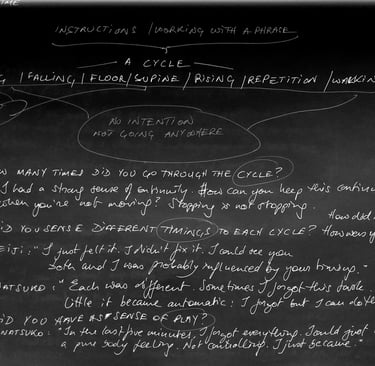 TIME
INSTRUCTIONS / WORKING WITH A PHRASE
A CYCLE
G / FALLING / FLOOR / SUPINE / RISING / REPETITION / WALKIN
NO INTENTION
NOT GOING ANYWHERE
OW MANY TIMES DID YOU GO THROUGH THE CYCLE?
I had a strong sense of continuity. How can you keep this continu
when you're not moving? Stopping is not stopping.
How did
DID YOU SENSE DIFFERENT TIMINGS TO EACH CYCLE? How were
EIJI: "I just felt it. I didn't fix it. I could see you
both and I was probably influenced by your timing."
NATSUKO: "Each was different. Sometimes I forgot this
little it became automatic: I forgot but I can do the
DID YOU HAVE A SENSE OF PLAY?
NATSUKO: "In the last five minutes, I forgot everything. I could just
a pure body feeling. Not controlling. I just became."